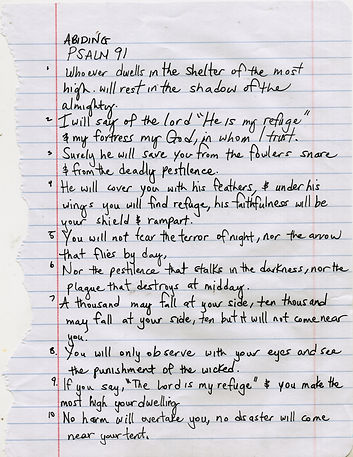 ABIDING
PSALM 91
1 Whoever dwells in the shelter of the most
high. will rest in the shadow of the
almighty.
2 I will say of the lord "He is my refuge"
& my fortress my God, in whom I trust.
3 Surely he will save you from the fowlers snare
& from the deadly pestilence.
4 He will cover you with his feathers, & under his
wings you will find refuge, his faithfulness will be
your shield & rampart.
5 You will not fear the terror of night, nor the arrow
that flies by day,
6 Nor the pestilence that stalks in the darkness, nor the
plague that destroys at midday.
7 A thousand may fall at your side, ten thousand
may fall at your side, ten but it will not come near
you.
8. You will only observe with your eyes and see
the punishment of the wicked.
9. If you say, "The Lord is my refuge" & you make the
most high your dwelling
10 No harm will overtake you, no disaster will come
near your tent.